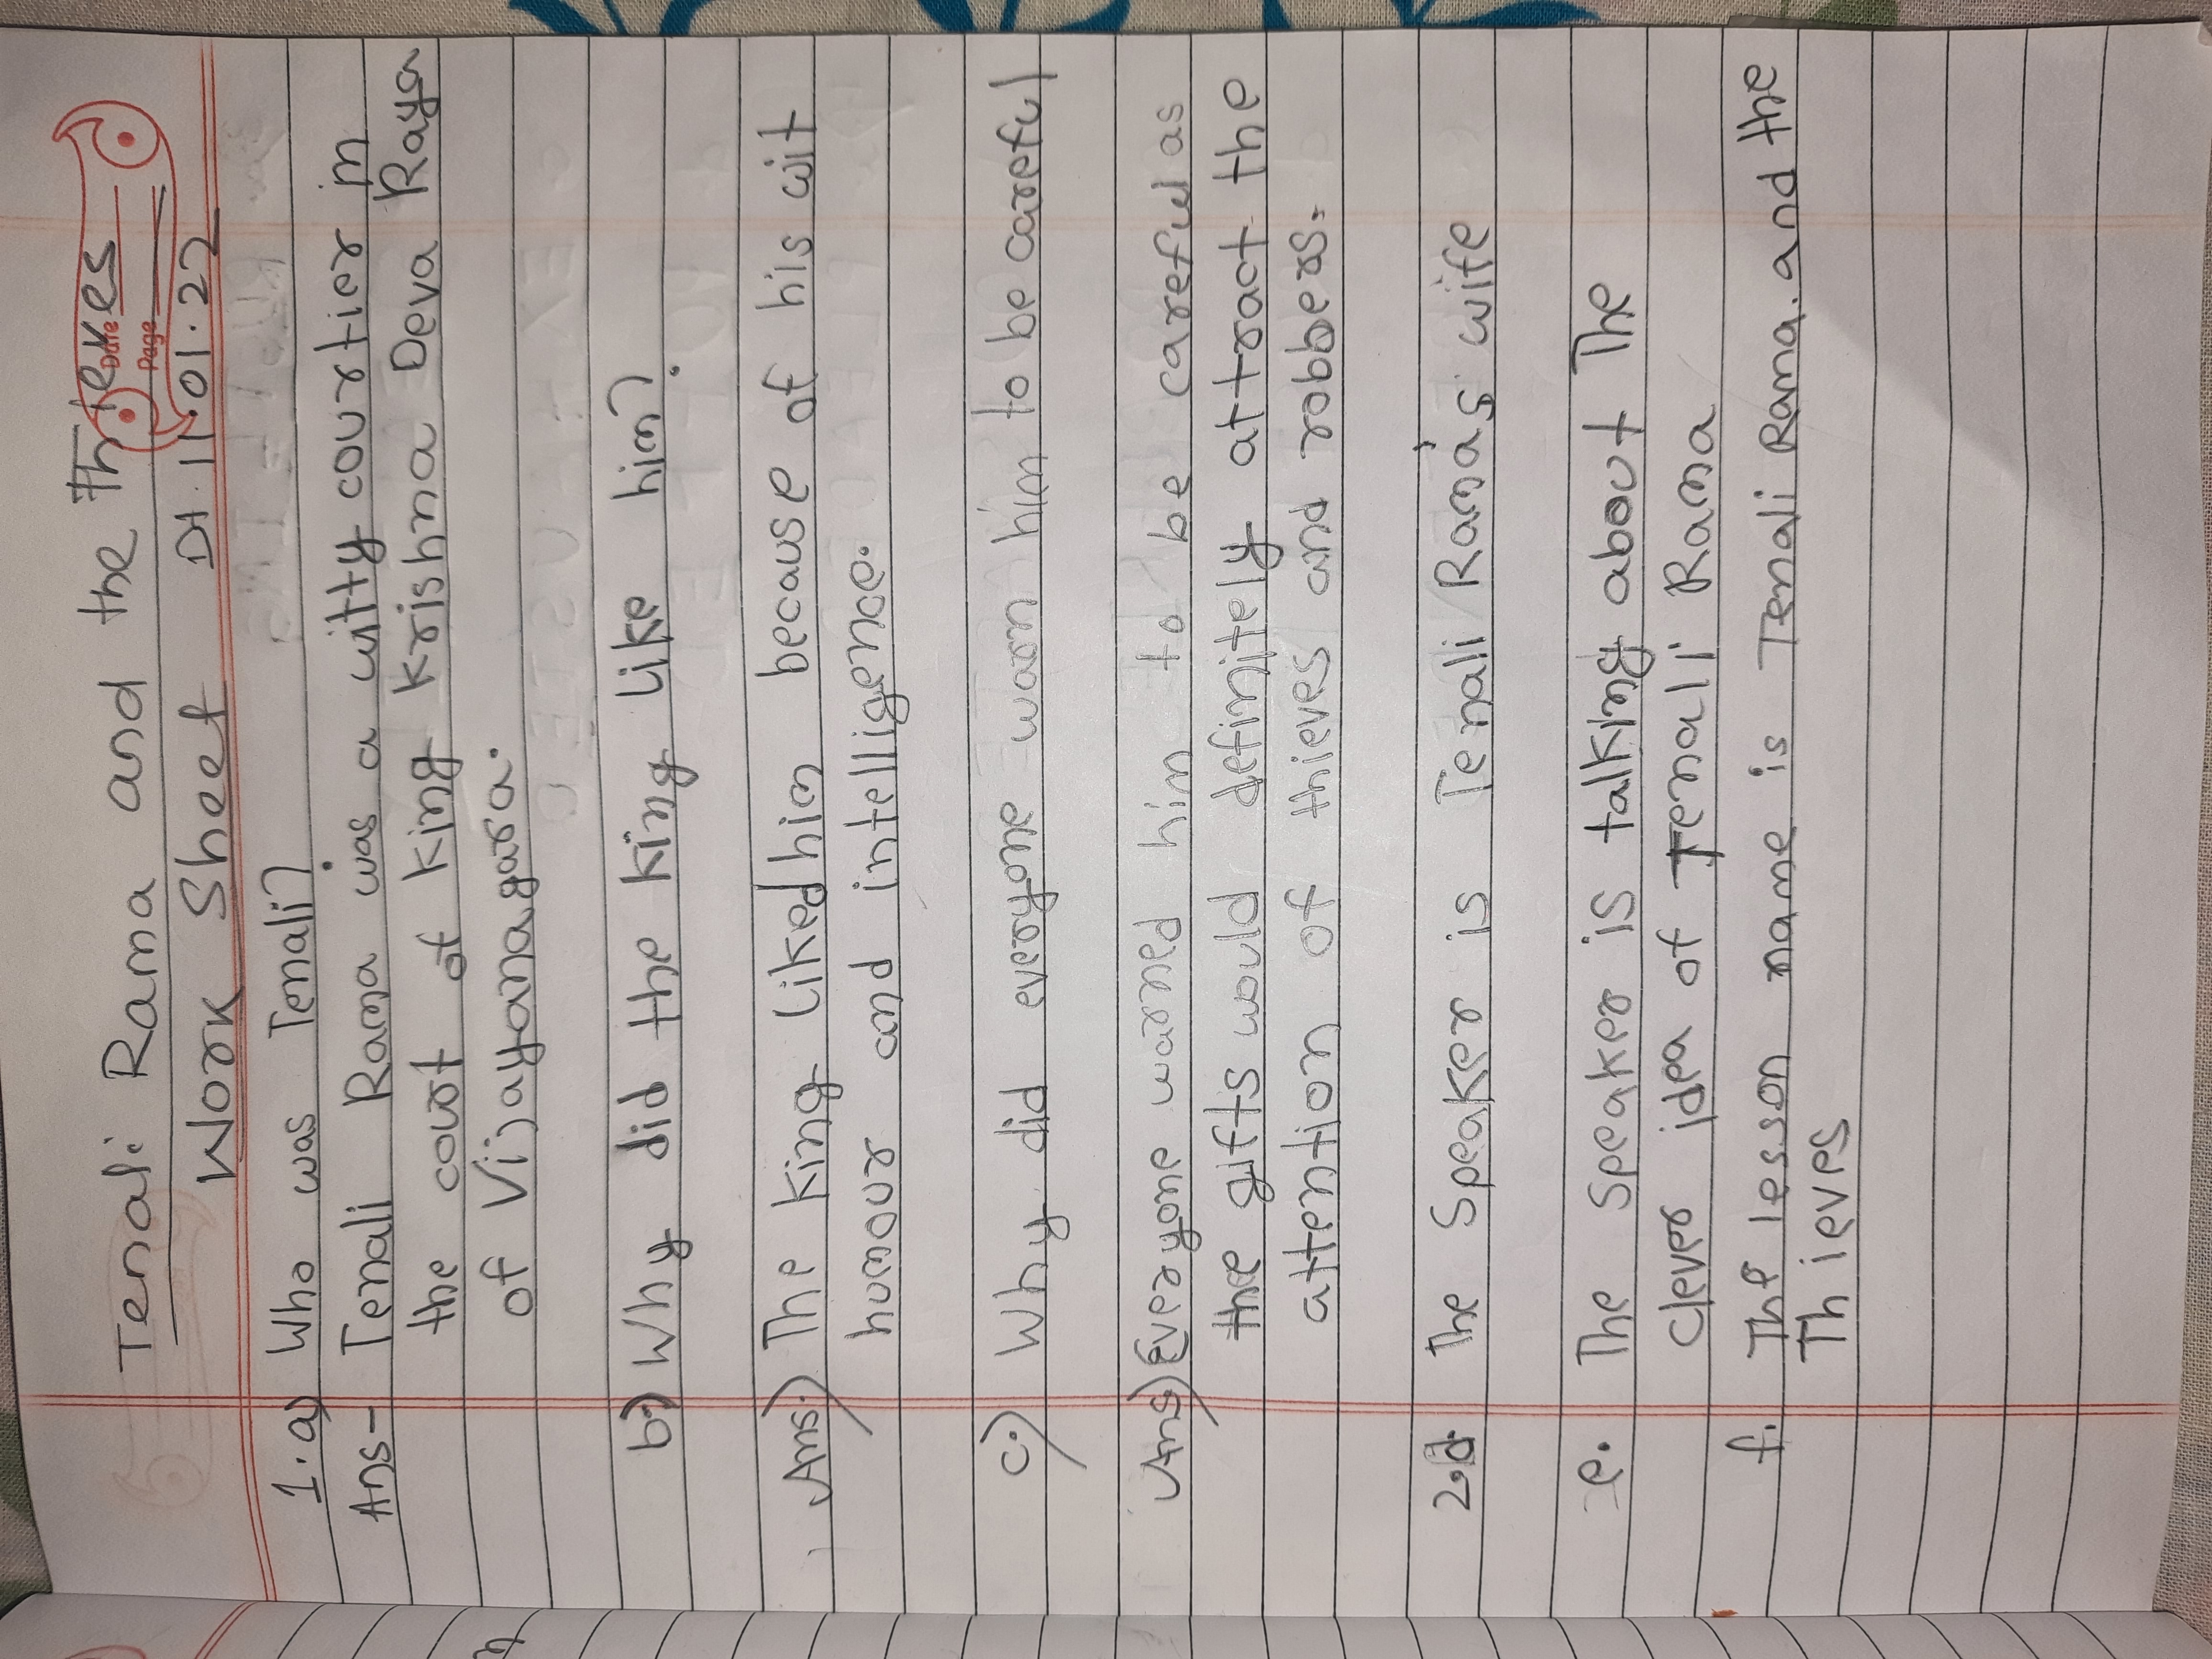 Tenali Rama and the Thieves
Date
Page
Work Sheet Dt. 11.01.22
1. a) Who was Tenali?
Ans- Tenali Rama was a witty courtier in
the court of King Krishna Deva Raya
of Vijayanagara.
b.) Why did the King like him?
Ans.) The King liked him because of his wit
humour and intelligence.
c.) Why did everyone warn him to be careful
Ans.) Everyone warned him to be careful as
the gifts would definitely attract the
attention of thieves and robbers.
2.d. The Speaker is Tenali Rama's wife
e. The Speaker is talking about The
Clever idea of Tenali Rama
f. The lesson name is Tenali Rama. and the
Thieves